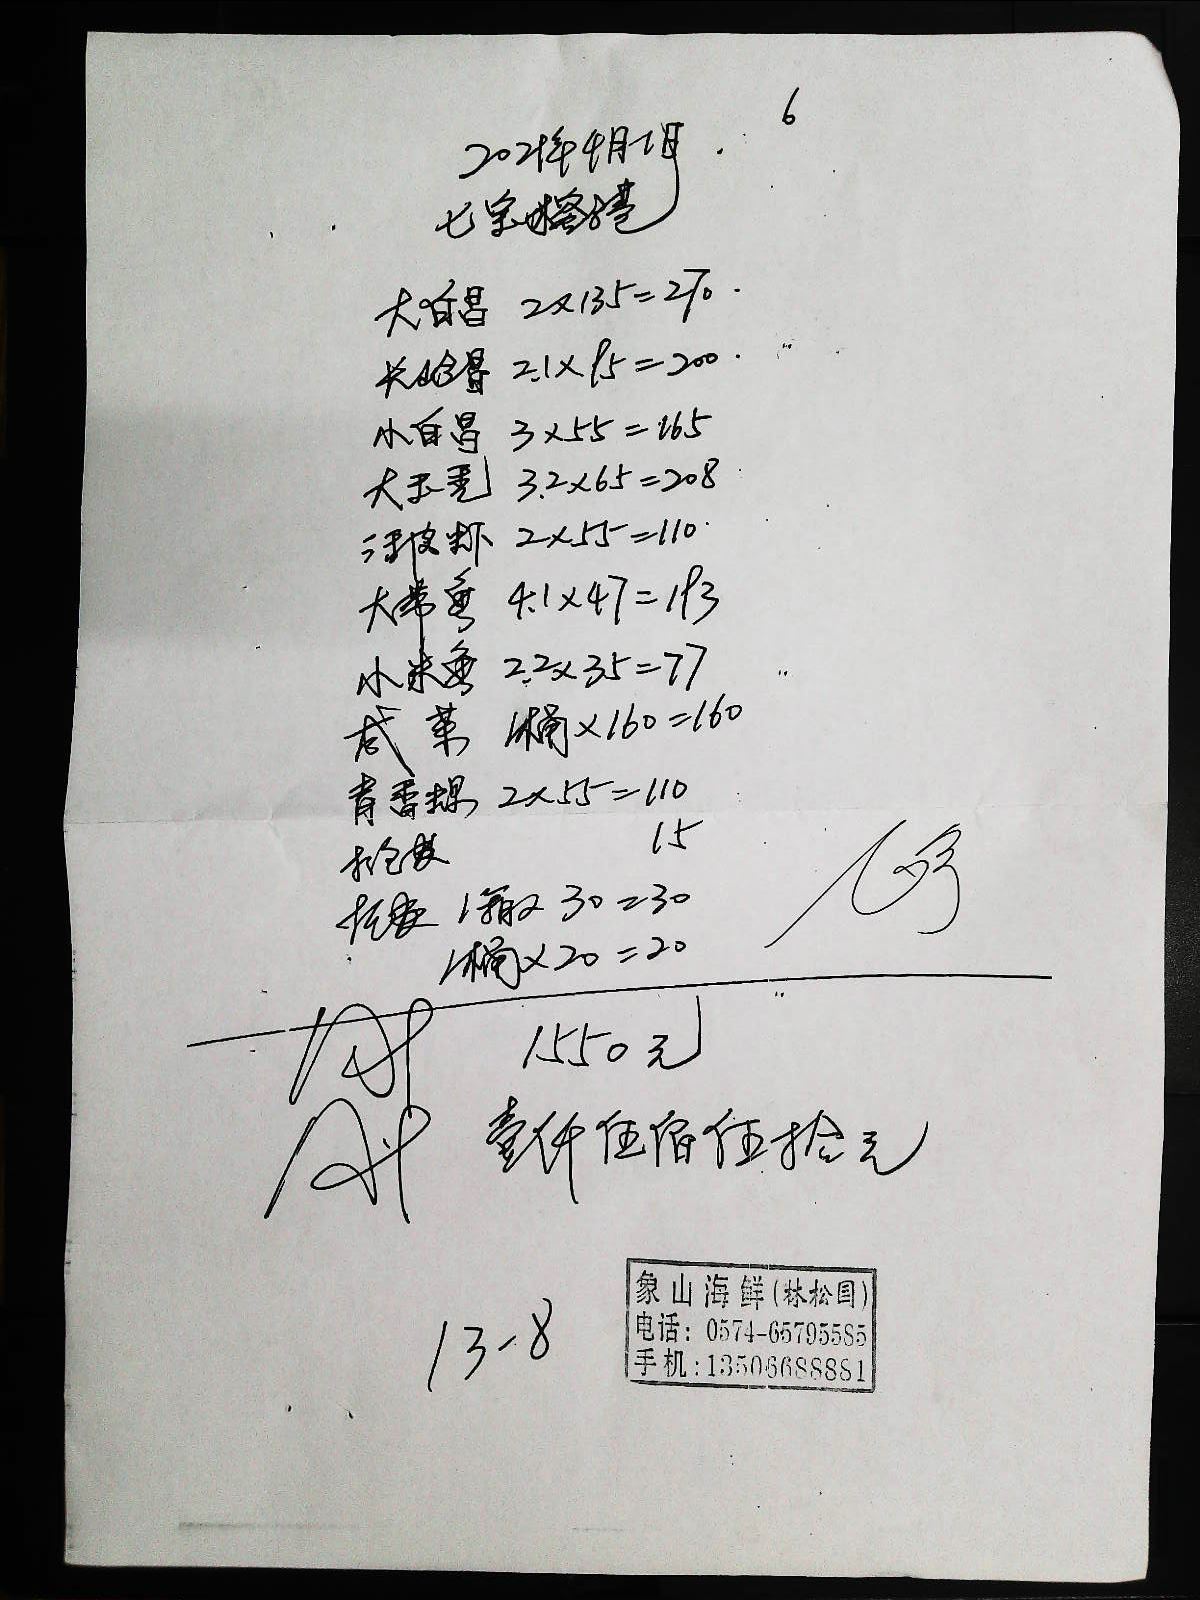 6
2021年4月1日
七宝
大白昌 2×135=270
长白昌 2.1×95=200
小白昌 3×55=165
大玉秃 3.2×65=208
皮虾 2×55=110
大带鱼 4.1×47=193
小米鱼 2.2×35=77
咸菜 1桶×160=160
青香螺 2×55=110
15
1箱×30=30
1桶×20=20
1550元
壹仟伍佰伍拾元
13-8
象山海鲜(林松国)
电话: 0574-65795585
手机:13506688881